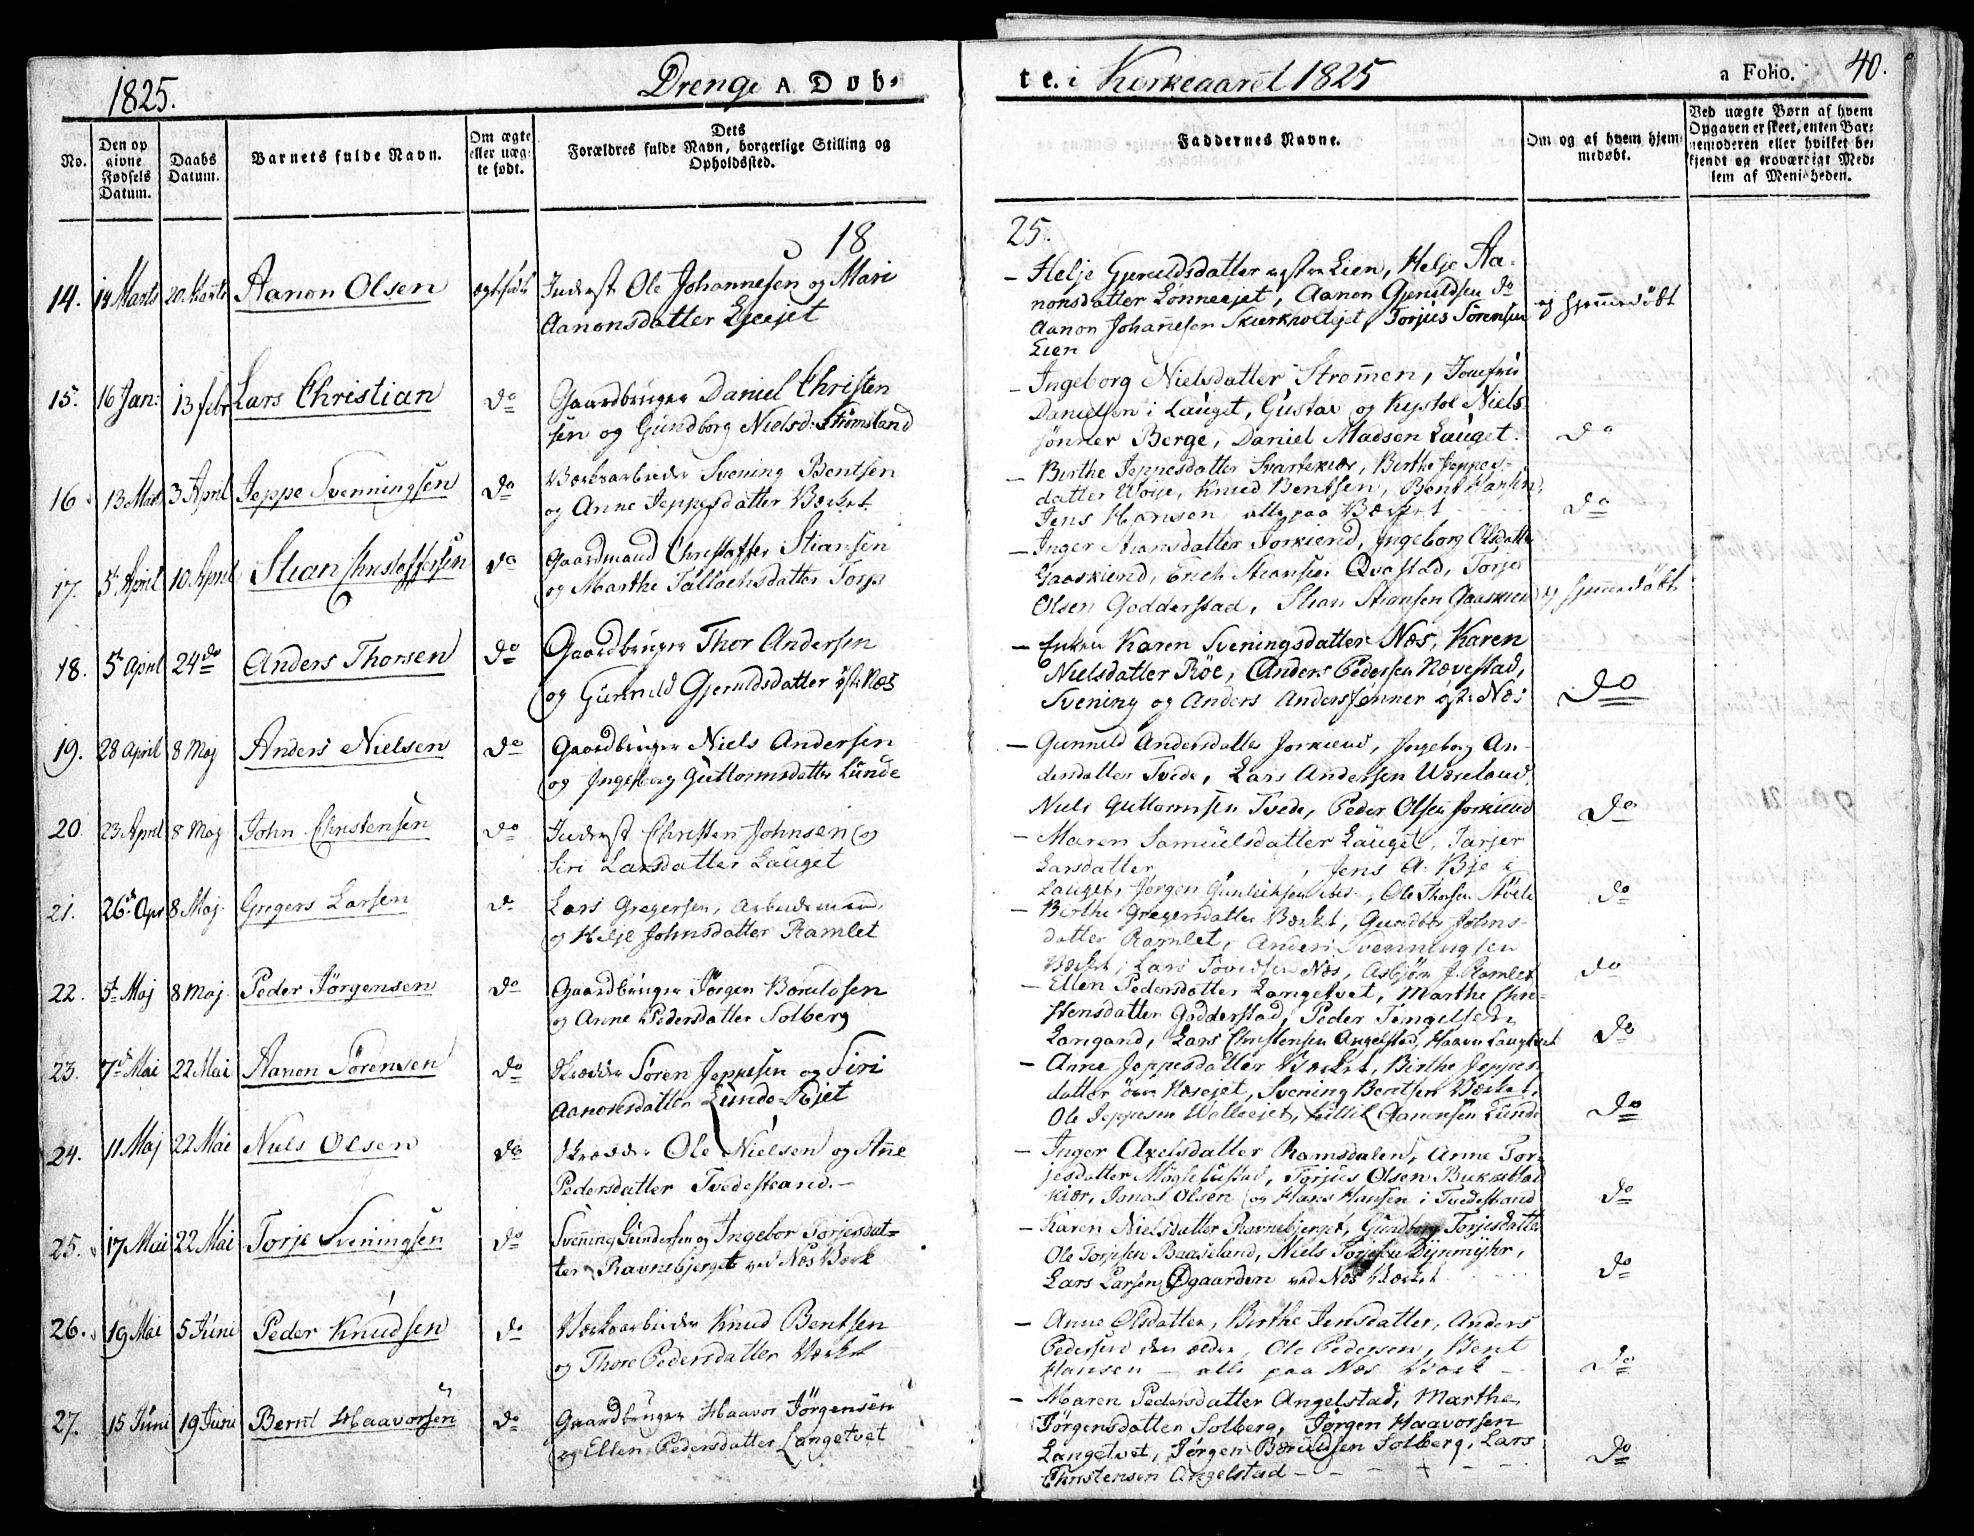 1825.
Drenge A Døb-
te. i Kirkeaaret 1825
a Folio. 40.
No.
Den op
givne
Fødsels
Datum.
Daabs
Datum.
Barnets fulde Navn.
Om ægte
eller uæg-
te født.
Dets
Forældres fulde Navn, borgerlige Stilling og
Opholdssted.
Faddernes Navne.
Om og af hvem hjem-
medøbt.
Ved uægte Børn af hvem
Opgaven er skeet, enten Bar-
nemoderen eller hvilket be-
kjendt og troværdigt Med-
lem af Menigheden.
18
25.
14. 14 Marts 20. Marts Aanon Olsen ægtefødt Inderst Ole Johannesen og Mari
Aanonsdatter Ejeejet
- Helje Gjeruldsdatter Lien, Helje Aa-
nonsdatter Lønneejet, Aanon Gjeruldsen do
Aanon Johannesen Torjus Sørensen
Lien
ej hjemmedøbt
15. 16 Jan: 13 febr Lars Christian do Gaardbruger Daniel Christen
sen og Gundborg Nielsd: Strømsland
- Ingeborg Nielsdatter Strømen,
Danielsen i Lauget, Gustav og Kystol Niels-
sønner Berge, Daniel Madsen Lauget.
do
16 13 Marts 3 April Jeppe Svenningsen do Værksarbeider Svening Bentsen
og Anne Jeppesdatter Værket
- Birthe Jeppesdatter Svartekiær, Birthe Jeppes-
datter Woie, Knud Bentsen, Bent Hansen,
Jens Hansen alle paa Værket
do
17. 5t April 10 April Stian Christoffersen do Gaardmand Christoffer Stiansen
og Marthe Tallachsdatter Torp
- Inger Stiansdatter Jorkiend, Ingeborg Olsdatter
Gaaskiend, Erich Stiansen Qvastad, Torje
Olsen Godderstad, Stian Stiansen Gaaskiend
ej hjemmedøbt
18. 5t April 24 do Anders Thorsen do Gaardbruger Thor Andersen
og Gunnild Gjeruldsdatter østre Næs
- Enken Karen Sveningsdatter Næs, Karen
Nielsdatter Røe, Anders Pedersen Nævestad,
Svening og Anders Anderssønner østre Næs
do
19. 28 April 8 Maj Anders Nielsen do Gaardbruger Niels Andersen
og Ingeborg Guttormsdatter Lunde
- Gunnild Andersdatter Jorkiend, Ingeborg An-
dersdatter Tvede, Lars Andersen Wæreland,
Niels Guttormsen Tvede, Peder Olsen Jorkiend
do
20 23 April 8 Maj John Christensen do Inderst Christen Johnsen og
Siri Larsdatter Lauget
- Maren Samuelsdatter Lauget, Tarjer
Larsdatter , Jens A. Bje i
Lauget, Jørgen Gunleiksen , Ole Thorsen
do
21. 26d Apr 8 Maj. Gregers Larsen do Lars Gregersen, Arbeidsmand,
og Helje Johnsdatter Ramlet
- Birthe Gregersdatter Værket, Gundbor Johns-
datter Ramlet, Anders Svenningsen
Værket, Lars Tovedsen Næs, Asbjørn J. Ramlet
do
22. 5t Maj 8 Maj. Peder Jörgensen do Gaardbruger Jørgen Boruldsen
og Anne Pedersdatter Solberg
- Ellen Pedersdatter Langetvet, Marthe Chri-
stensdatter Godderstad, Peder Tengelsen
Langand, Lars Christensen Angelstad, Haavor Langetvet
do
23. 7d Mai 22 Mai Aanon Sörensen do Skrædder Søren Jeppesen og Siri
Aanonsdatter Lunde-Ejet
- Anne Jeppesdatter Værket, Birthe Jeppes-
datter øvre Næsejet, Svening Bentsen Værket,
Ole Jeppesen Wolleejet, Kittil Aanonsen Lunde
do
24. 11 Maj 22 Mai Niels Olsen do Skrædder Ole Nielsen og Añe
Pedersdatter Tvedestrand.-
- Inger Axelsdatter Ramsdalen, Anne Tor-
jesdatter Møglebustad, Torjus Olsen
kiær, Jonas Olsen og Hans Hansen i Tvedestrand
do
25. 17 Mai 22 Mai Torje Sveningsen do Svening Gundersen og Ingebor Torjesdat-
ter Ravnebjerget ved Næs Værk
- Karen Nielsdatter Ravnebjerget, Gundborg Torjesdatter
Ole Torjesen Baaseland, Niels Torjesen Dynmyhr,
Lars Larsen Øgaarden ved Næs Værket
do
26. 19 Mai 5 Juni Peder Knudsen do Værksarbeider Knud Bentsen
og Thore Pedersdatter Værket
- Anne Olsdatter, Birthe Jensdatter, Anders
Pedersen den ældre, Ole Pedersen, Bent
Hansen - alle paa Næs Værk -
do
27. 15 Juni 19 Juni Bernt Haavorsen do Gaardbruger Haavor Jörgensen
og Ellen Pedersdatter Langetvet
- Maren Pedersdatter Angelstad, Marthe
Jørgensdatter Solberg, Jørgen Haavorsen
Langetvet, Jørgen Boruldsen Solberg, Lars
Christensen Angelstad
do